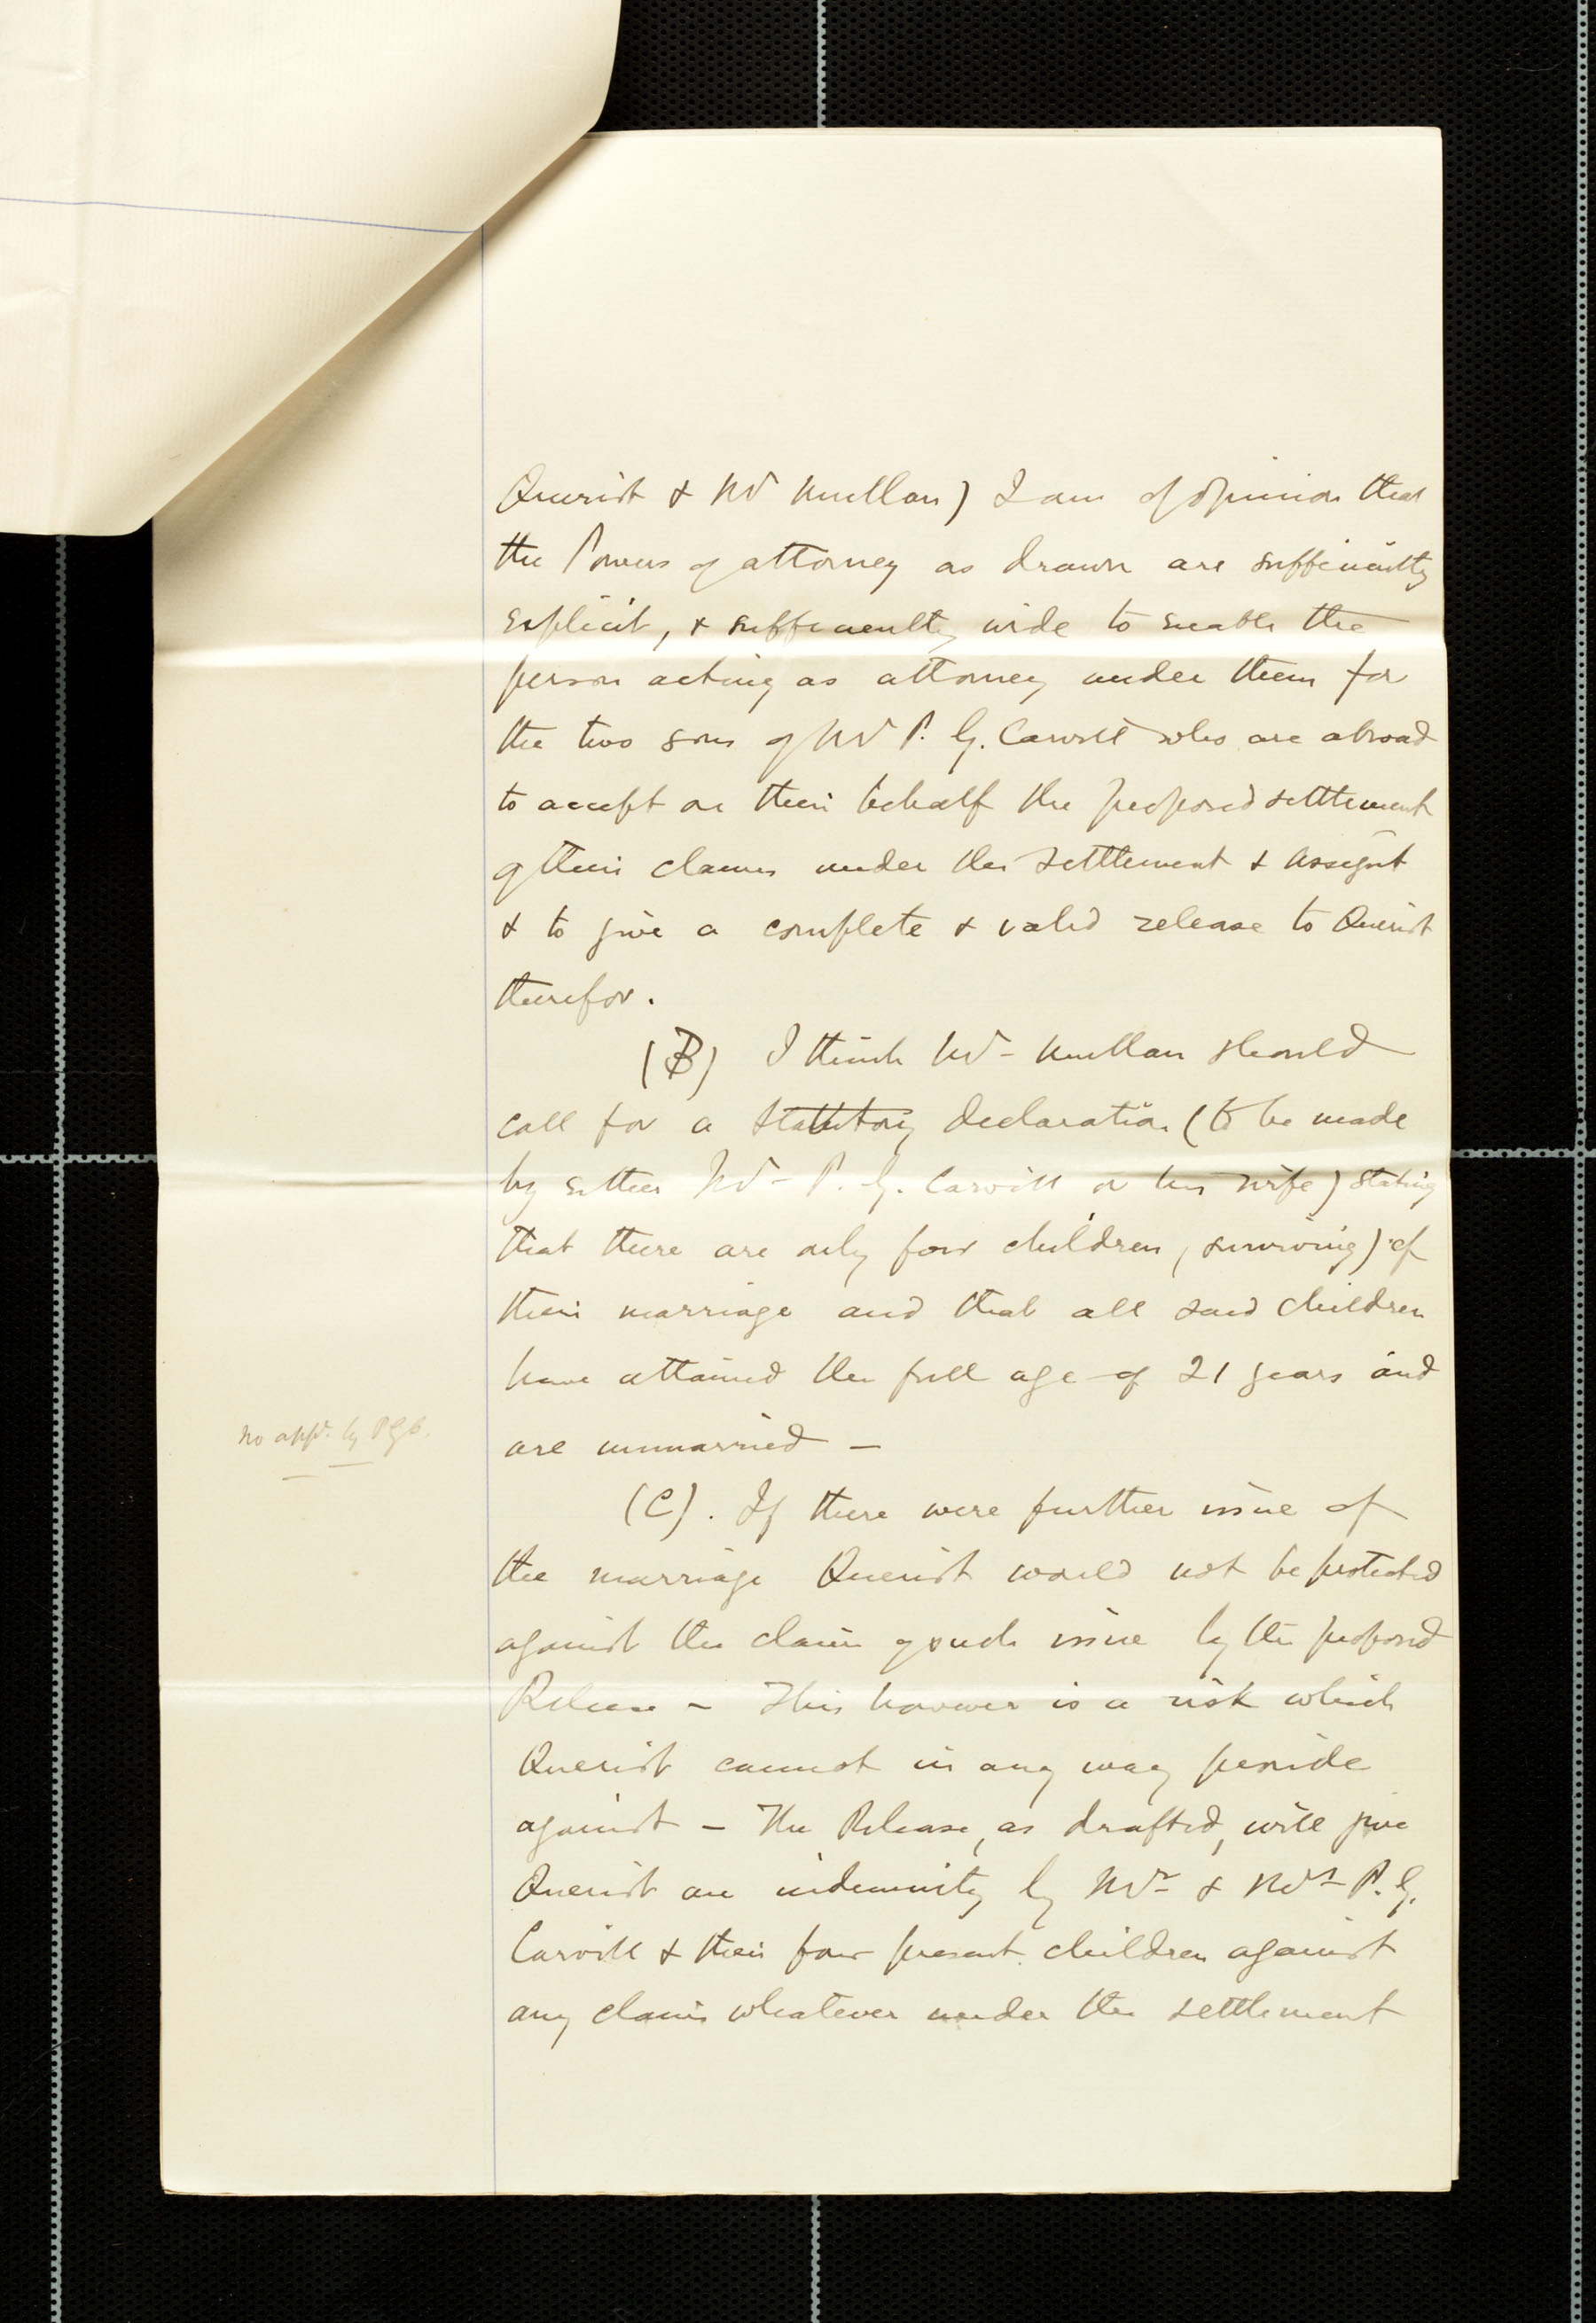 Querist & Mr Mullan) I am of opinion that
the Powers of attorney as drawn are sufficiently
explicit, & sufficiently wide to enable the
person acting as attorney under them for
the two sons of Mr P. G. Carvill who are abroad
to accept on their behalf the proposed settlement
of their claims under the Settlement & Assignt
& to give a complete & valid release to Querist
therefor.
(B) I think Mr Mullan should
call for a Statutory declaration (to be made
by either Mr P. G. Carvill or his wife) stating
that there are only four children (surviving) of
their marriage and that all said children
have attained the full age of 21 years and
are unmarried —
No appt. by PGC.
(C). If there were further issue of
the marriage Querist would not be protected
against the claim of such issue by the proposed
Release – This however is a risk which
Querist cannot in any way provide
against – The Release, as drafted, will give
Querist an indemnity by Mr & Mrs P. G.
Carvill & their four present children against
any claim whatever under the settlement